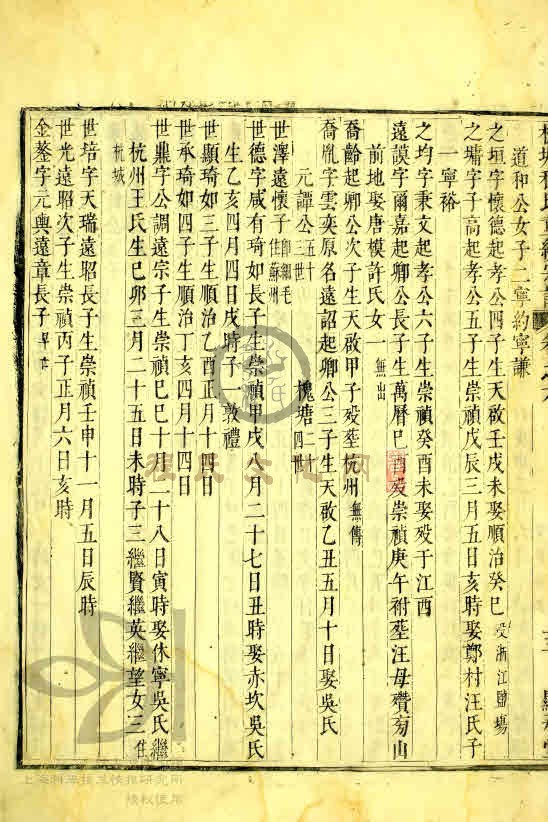 道和公女子二寧約寧謙
之垣字懷德起孝公四子生天啟壬戌未娶順治癸巳歿浙江
之墉字子高起孝公五子生崇禎戊辰三月五日亥時娶鄭村汪氏子
一寧裕
之均字秉文起孝公六子生崇禎癸酉未娶歿于江西
遠謨字爾嘉起卿公長子生萬曆己酉歿崇禎庚午祔塟汪母
前地娶唐模許氏女一無出
喬齡起卿公次子生天啟甲子歿塟杭州無傳
喬胤字雲奕原名遠詔起卿公三子生天啟乙丑五月十日娶吳氏
元譚公五十三世 槐塘二十四世
世澤遠懷子住蘇州
世德字咸有琦如長子生崇禎甲戌八月二十七日丑時娶赤坎吳氏
生乙亥四月四日戌時子一敦禮
世顯琦如三子生順治乙酉正月十四日
世承琦如四子生順治丁亥四月十四日
世鼎字公調遠宗子生崇禎己巳十月二十八日寅時娶休寧吳氏繼
杭州王氏生己卯三月二十五日未時子三繼賢繼英繼望女三住杭城
世培字天瑞遠昭長子生崇禎壬申十一月五日辰時
世光遠昭次子生崇禎丙子正月六日亥時
金鎣字元輿遠章長子早世